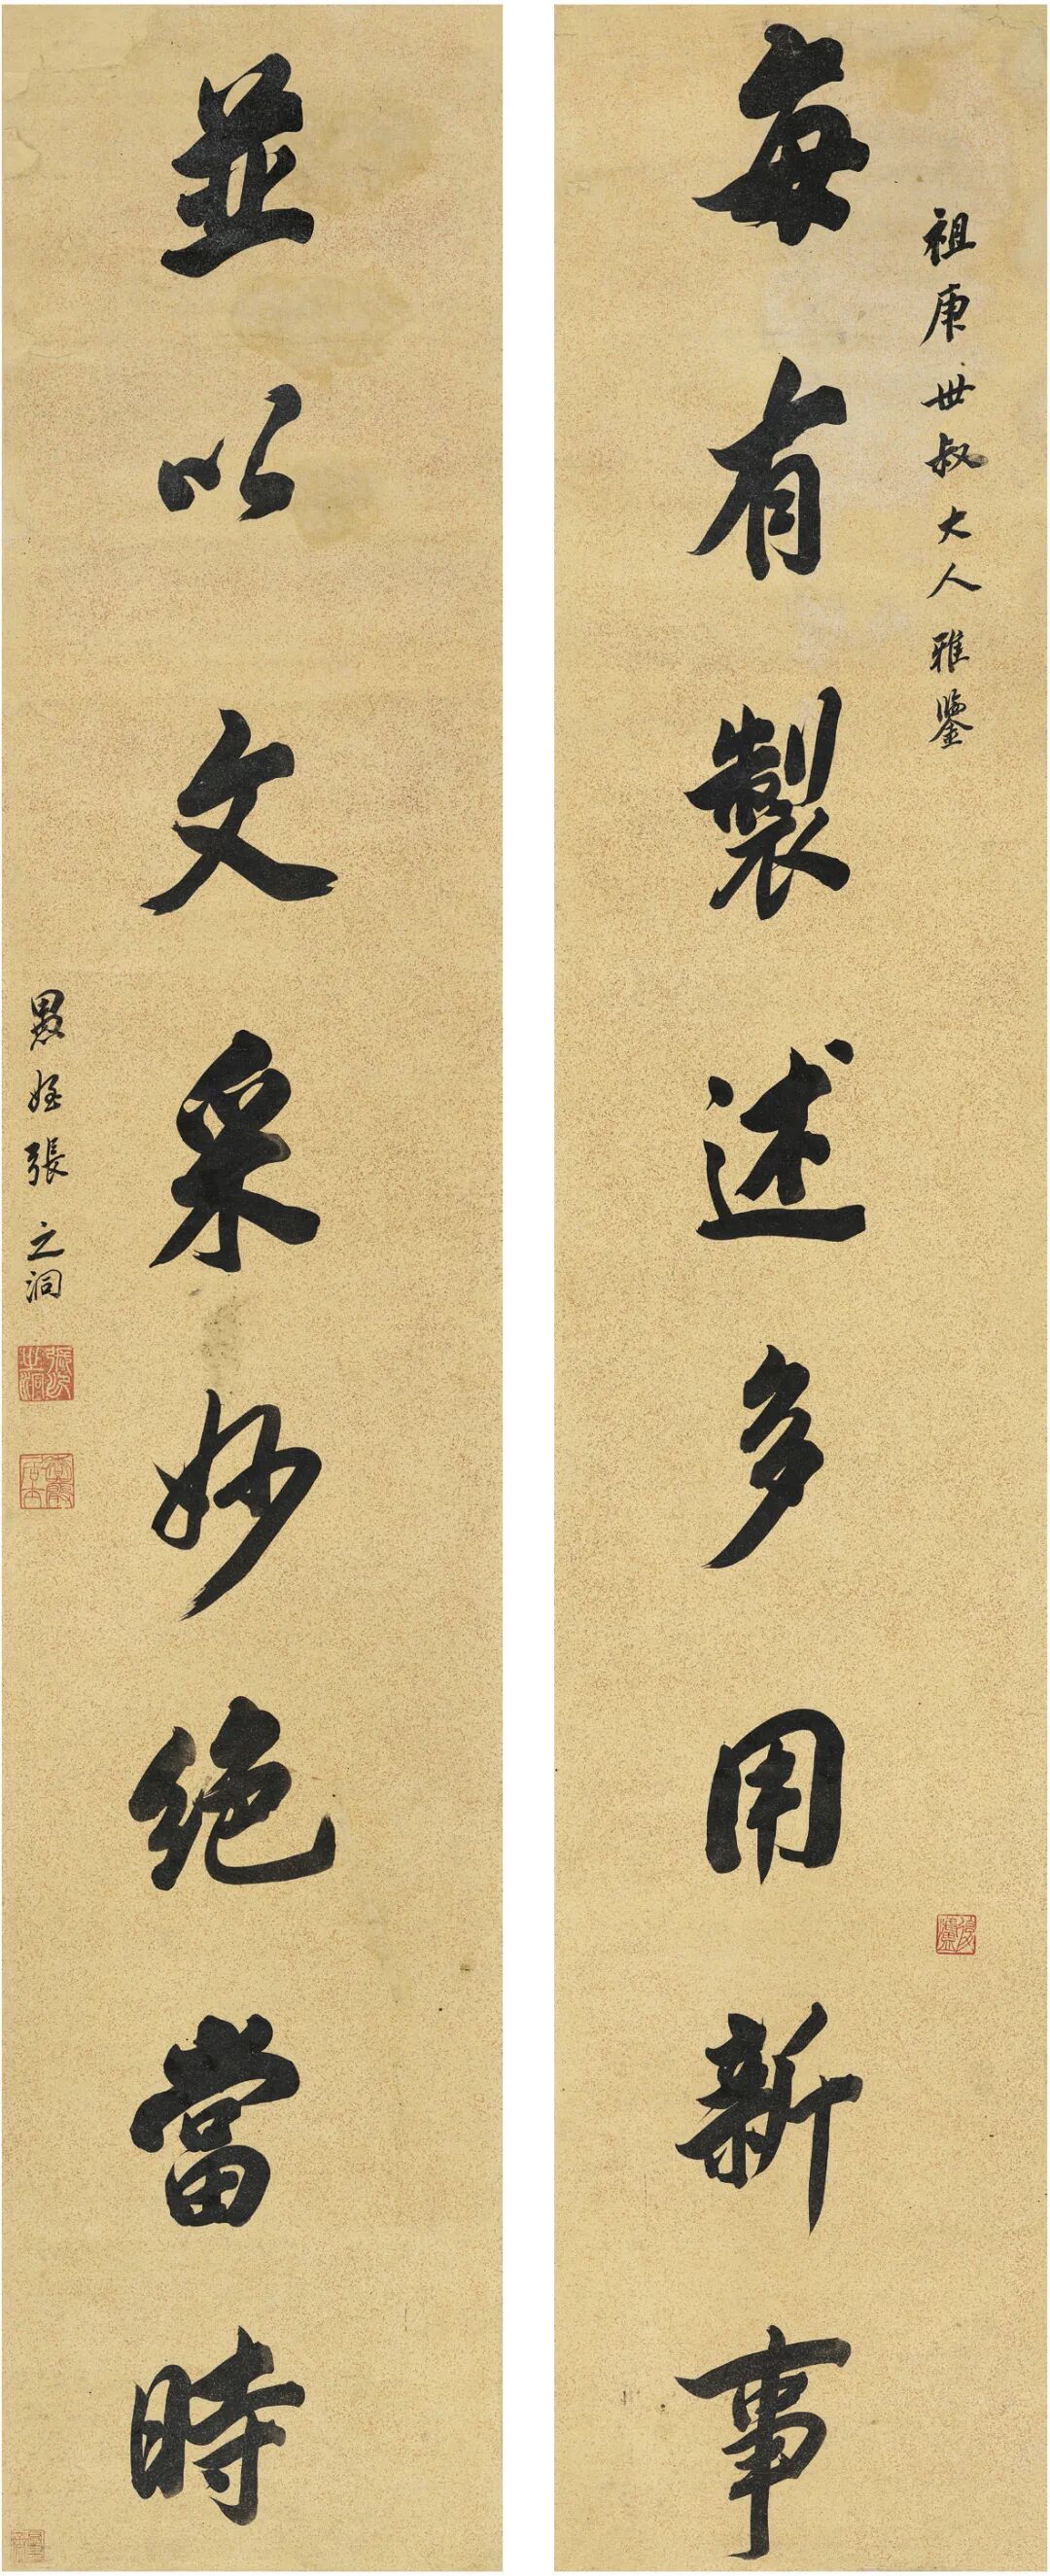 祖庚世叔大人雅鑒
每有製述多用新事
並以文采妙絕當時
愚姪張之洞